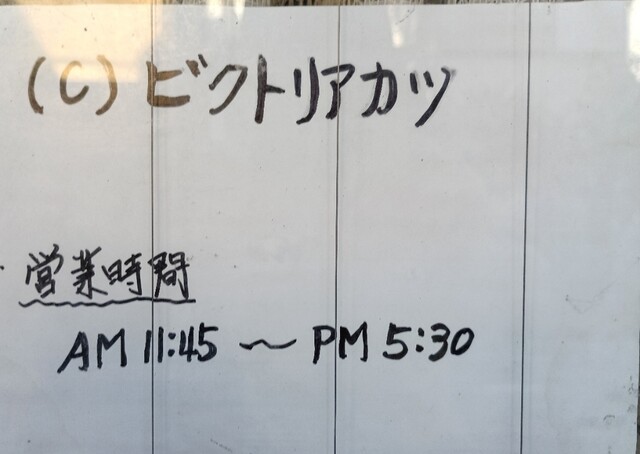 (C) ビクトリアカツ
営業時間
AM 11:45 〜 PM 5:30